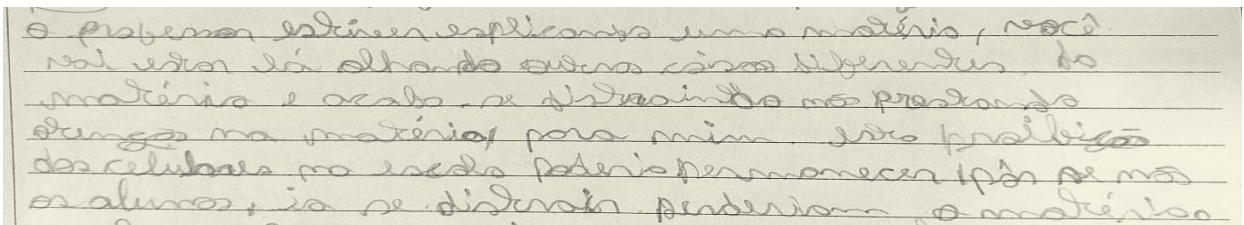 o professor estiver explicando uma matéria, você
vai estar lá olhando outras coisas diferentes da
matéria e acaba se distraindo não prestando
atenção na matéria, para mim esta proibição
dos celulares na escola poderia permanecer, pois se não
os alunos, ia se distrair perderiam a matéria